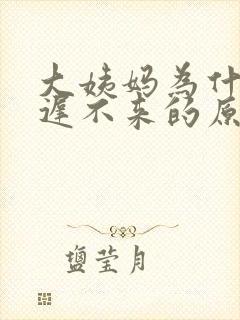 大姨妈为什
迟不来的原
盐莹月